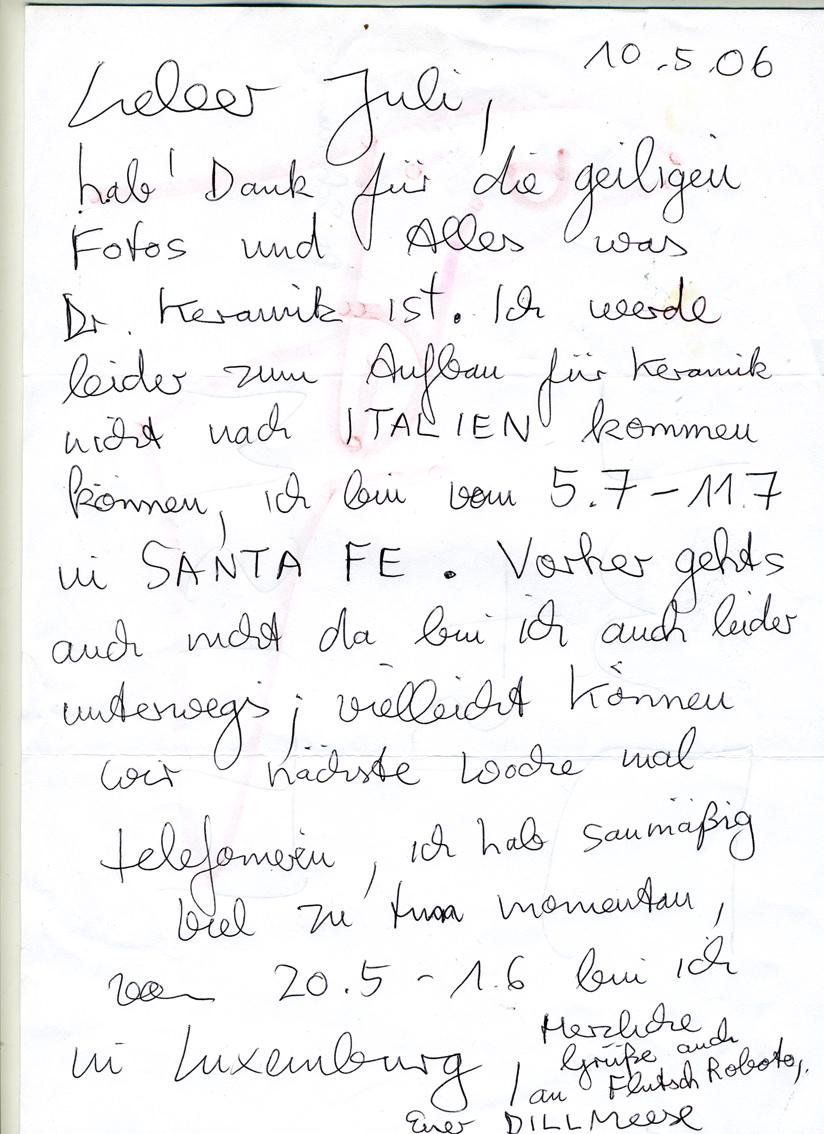 10.5.06
Lieber Juli,
hab' Dank für die geiligen
Fotos und Alles was
Dr. Keramik ist. Ich werde
leider zum Aufbau für Keramik
nicht nach ITALIEN kommen
können, ich bin vom 5.7-11.7
in SANTA FE. Vorher gehts
auch nicht da bin ich auch leider
unterwegs; vielleicht können
wir nächste Woche mal
telefonieren, ich hab saumäßig
viel zu tun momentan,
vom 20.5-1.6 bin ich
in Luxemburg,
Herzliche
Grüße auch
an Flutsch Roboto,
Euer DILLMeese